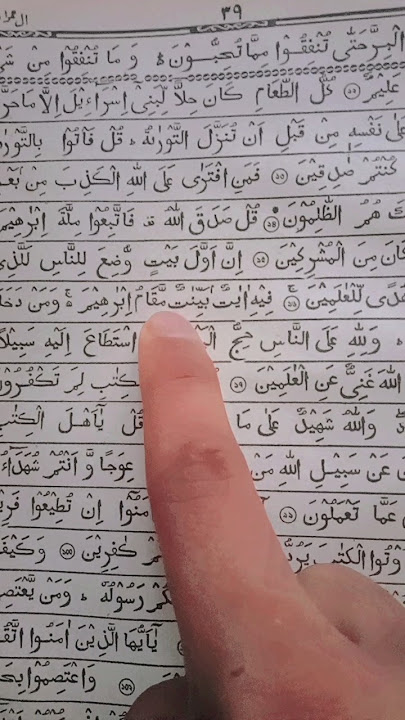 ٣٩ ال عمرا
الْبِرَّ حَتّٰى تُنْفِقُوْا مِمَّا تُحِبُّوْنَ ۵ وَ مَا تُنْفِقُوْا مِنْ شَیْ
عَلِیْمٌ ۝ كُلُّ الطَّعَامِ كَانَ حِلًّا لِّبَنِیْۤ اِسْرَآءِیْلَ اِلَّا مَا حَرَّ
عَلٰى نَفْسِهٖ مِنْ قَبْلِ اَنْ تُنَزَّلَ التَّوْرٰىةُ ؕ قُلْ فَاْتُوْا بِالتَّوْرٰى
كُنْتُمْ صٰدِقِیْنَ ۝ فَمَنِ افْتَرٰى عَلَى اللّٰهِ الْكَذِبَ مِنْۢ بَعْ
كَ هُمُ الظّٰلِمُوْنَ ۝ قُلْ صَدَقَ اللّٰهُ فَاتَّبِعُوْا مِلَّةَ اِبْرٰهِیْمَ
كَانَ مِنَ الْمُشْرِكِیْنَ ۝ اِنَّ اَوَّلَ بَیْتٍ وُّضِعَ لِلنَّاسِ لَلَّذِیْ
هُدًى لِّلْعٰلَمِیْنَ ۝ فِیْهِ اٰیٰتٌۢ بَیِّنٰتٌ مَّقَامُ اِبْرٰهِیْمَ وَ مَنْ دَخَلَ
وَ لِلّٰهِ عَلَى النَّاسِ حِجُّ اسْتَطَاعَ اِلَیْهِ سَبِیْلًا
اللّٰهَ غَنِیٌّ عَنِ الْعٰلَمِیْنَ ۝ الْكِتٰبِ لِمَ تَكْفُرُوْنَ
وَ اللّٰهُ شَهِیْدٌ عَلٰى مَا قُلْ یٰۤاَهْلَ الْكِتٰبِ
عَنْ سَبِیْلِ اللّٰهِ مَنْ عِوَجًا وَّ اَنْتُمْ شُهَدَآءُ
عَمَّا تَعْمَلُوْنَ ۝ اِنْ تُطِیْعُوْا فَرِیْ
اُوْتُوا الْكِتٰبَ یَرُدُّ كٰفِرِیْنَ ۝ وَ كَیْفَ
رَسُوْلُهٗ ؕ وَ مَنْ یَّعْتَصِمْ
یٰۤاَیُّهَا الَّذِیْنَ اٰمَنُوا اتَّقُوا
وَ اعْتَصِمُوْا بِحَ